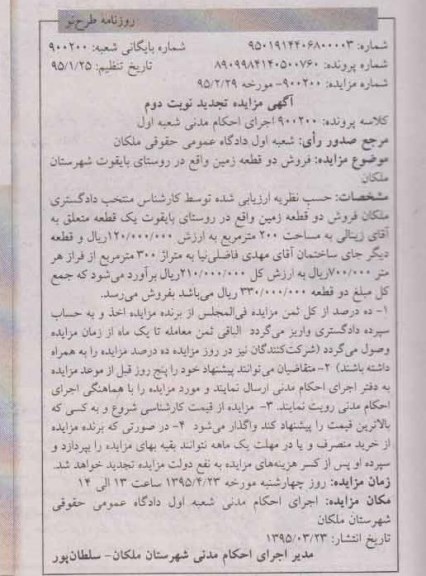 روزنامه طرح‌نو
شماره: ۹۵۰۱۹۱۴۴۰۶۸۰۰۰۰۳ شماره بایگانی شعبه: ۹۰۰۲۰۰
شماره پرونده: ۸۹۰۹۹۸۴۱۴۰۵۰۰۷۶۰ تاریخ تنظیم: ۹۵/۱/۲۵
شماره مزایده: ۹۰۰۲۰۰- مورخه ۹۵/۲/۲۹
آگهی مزایده تجدید نوبت دوم
کلاسه پرونده: ۹۰۰۲۰۰ اجرای احکام مدنی شعبه اول
مرجع صدور رأی: شعبه اول دادگاه عمومی حقوقی ملکان
موضوع مزایده: فروش دو قطعه زمین واقع در روستای بایقوت شهرستان
ملکان
مشخصات: حسب نظریه ارزیابی شده توسط کارشناس منتخب دادگستری
ملکان فروش دو قطعه زمین واقع در روستای بایقوت یک قطعه متعلق به
آقای زینالی به مساحت ۲۰۰ مترمربع به ارزش ۱۲۰/۰۰۰/۰۰۰ریال و قطعه
دیگر جای ساختمان آقای مهدی فاضلی‌نیا به متراژ ۳۰۰ مترمربع از قراز هر
متر ۷۰۰/۰۰۰ریال به ارزش کل ۲۱۰/۰۰۰/۰۰۰ریال برآورد می‌شود که جمع
کل مبلغ دو قطعه ۳۳۰/۰۰۰/۰۰۰ ریال می‌باشد بفروش می‌رسد.
۱- ده درصد از کل ثمن مزایده فی‌المجلس از برنده مزایده اخذ و به حساب
سپرده دادگستری واریز می‌گردد الباقی ثمن معامله تا یک ماه از زمان مزایده
وصول می‌گردد (شرکت‌کنندگان نیز در روز مزایده ده درصد مزایده را به همراه
داشته باشند) ۲- متقاضیان می‌توانند پیشنهاد خود را پنج روز قبل از موعد مزایده
به دفتر اجرای احکام مدنی ارسال نمایند و مورد مزایده را با هماهنگی اجرای
احکام مدنی رویت نمایند. ۳- مزایده از قیمت کارشناسی شروع و به کسی که
بالاترین قیمت را پیشنهاد کند واگذار می‌شود ۴- در صورتی که برنده مزایده
از خرید منصرف و یا در مهلت یک ماهه نتوانند بقیه بهای مزایده را بپردازد و
سپرده او پس از کسر هزینه‌های مزایده به نفع دولت مزایده تجدید خواهد شد.
زمان مزایده: روز چهارشنبه مورخه ۱۳۹۵/۴/۲۳ ساعت ۱۳ الی ۱۴
مکان مزایده: اجرای احکام مدنی شعبه اول دادگاه عمومی حقوقی
شهرستان ملکان
تاریخ انتشار: ۱۳۹۵/۰۳/۲۳
مدیر اجرای احکام مدنی شهرستان ملکان- سلطان‌پور